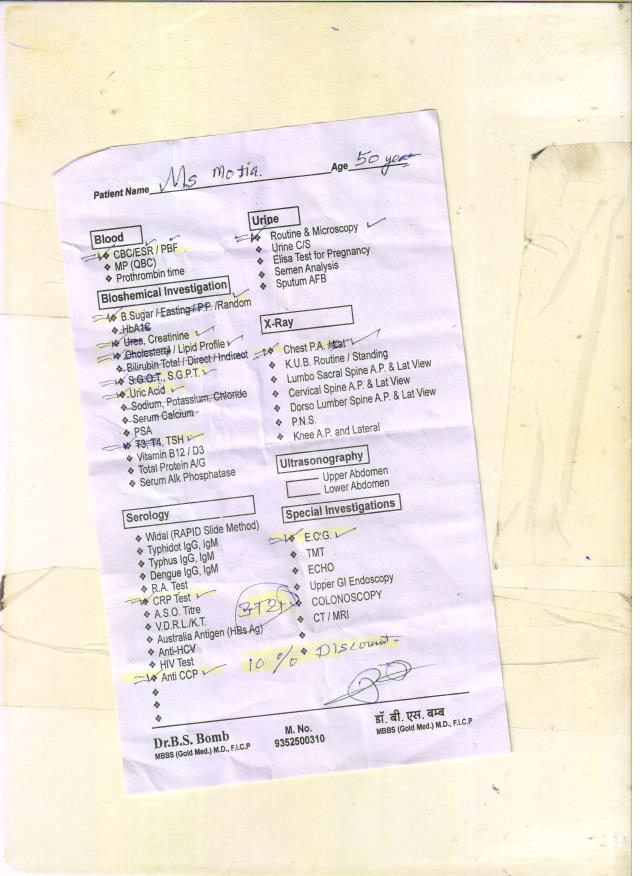 Patient Name Ms Motia. Age 50 year
Blood
CBC/ESR / PBF
MP (QBC)
Prothrombin time
Bioshemical Investigation
B.Sugar / Easting / P.P. /Random
HbA1C
Urea, Creatinine
Cholesterol / Lipid Profile
Bilirubin Total / Direct / Indirect
S.G.O.T., S.G.P.T.
Uric Acid
Sodium, Potassium, Chloride
Serum Calcium
PSA
T3, T4, TSH
Vitamin B12 / D3
Total Protein A/G
Serum Alk Phosphatase
Serology
Widal (RAPID Slide Method)
Typhidot IgG, IgM
Typhus IgG, IgM
Dengue IgG, IgM
R.A. Test
CRP Test
A.S.O. Titre
V.D.R.L./K.T.
Australia Antigen (HBs Ag)
Anti-HCV
HIV Test
Anti CCP
Urine
Routine & Microscopy
Urine C/S
Elisa Test for Pregnancy
Semen Analysis
Sputum AFB
X-Ray
Chest P.A. / Lat
K.U.B. Routine / Standing
Lumbo Sacral Spine A.P. & Lat View
Cervical Spine A.P. & Lat View
Dorso Lumber Spine A.P. & Lat View
P.N.S.
Knee A.P. and Lateral
Ultrasonography
Upper Abdomen
Lower Abdomen
Special Investigations
E.C.G.
TMT
ECHO
Upper GI Endoscopy
COLONOSCOPY
CT / MRI
10% Discount.
Dr.B.S. Bomb
MBBS (Gold Med.) M.D., F.I.C.P
M. No.
9352500310
डॉ. बी. एस. बम्ब
MBBS (Gold Med.) M.D., F.I.C.P